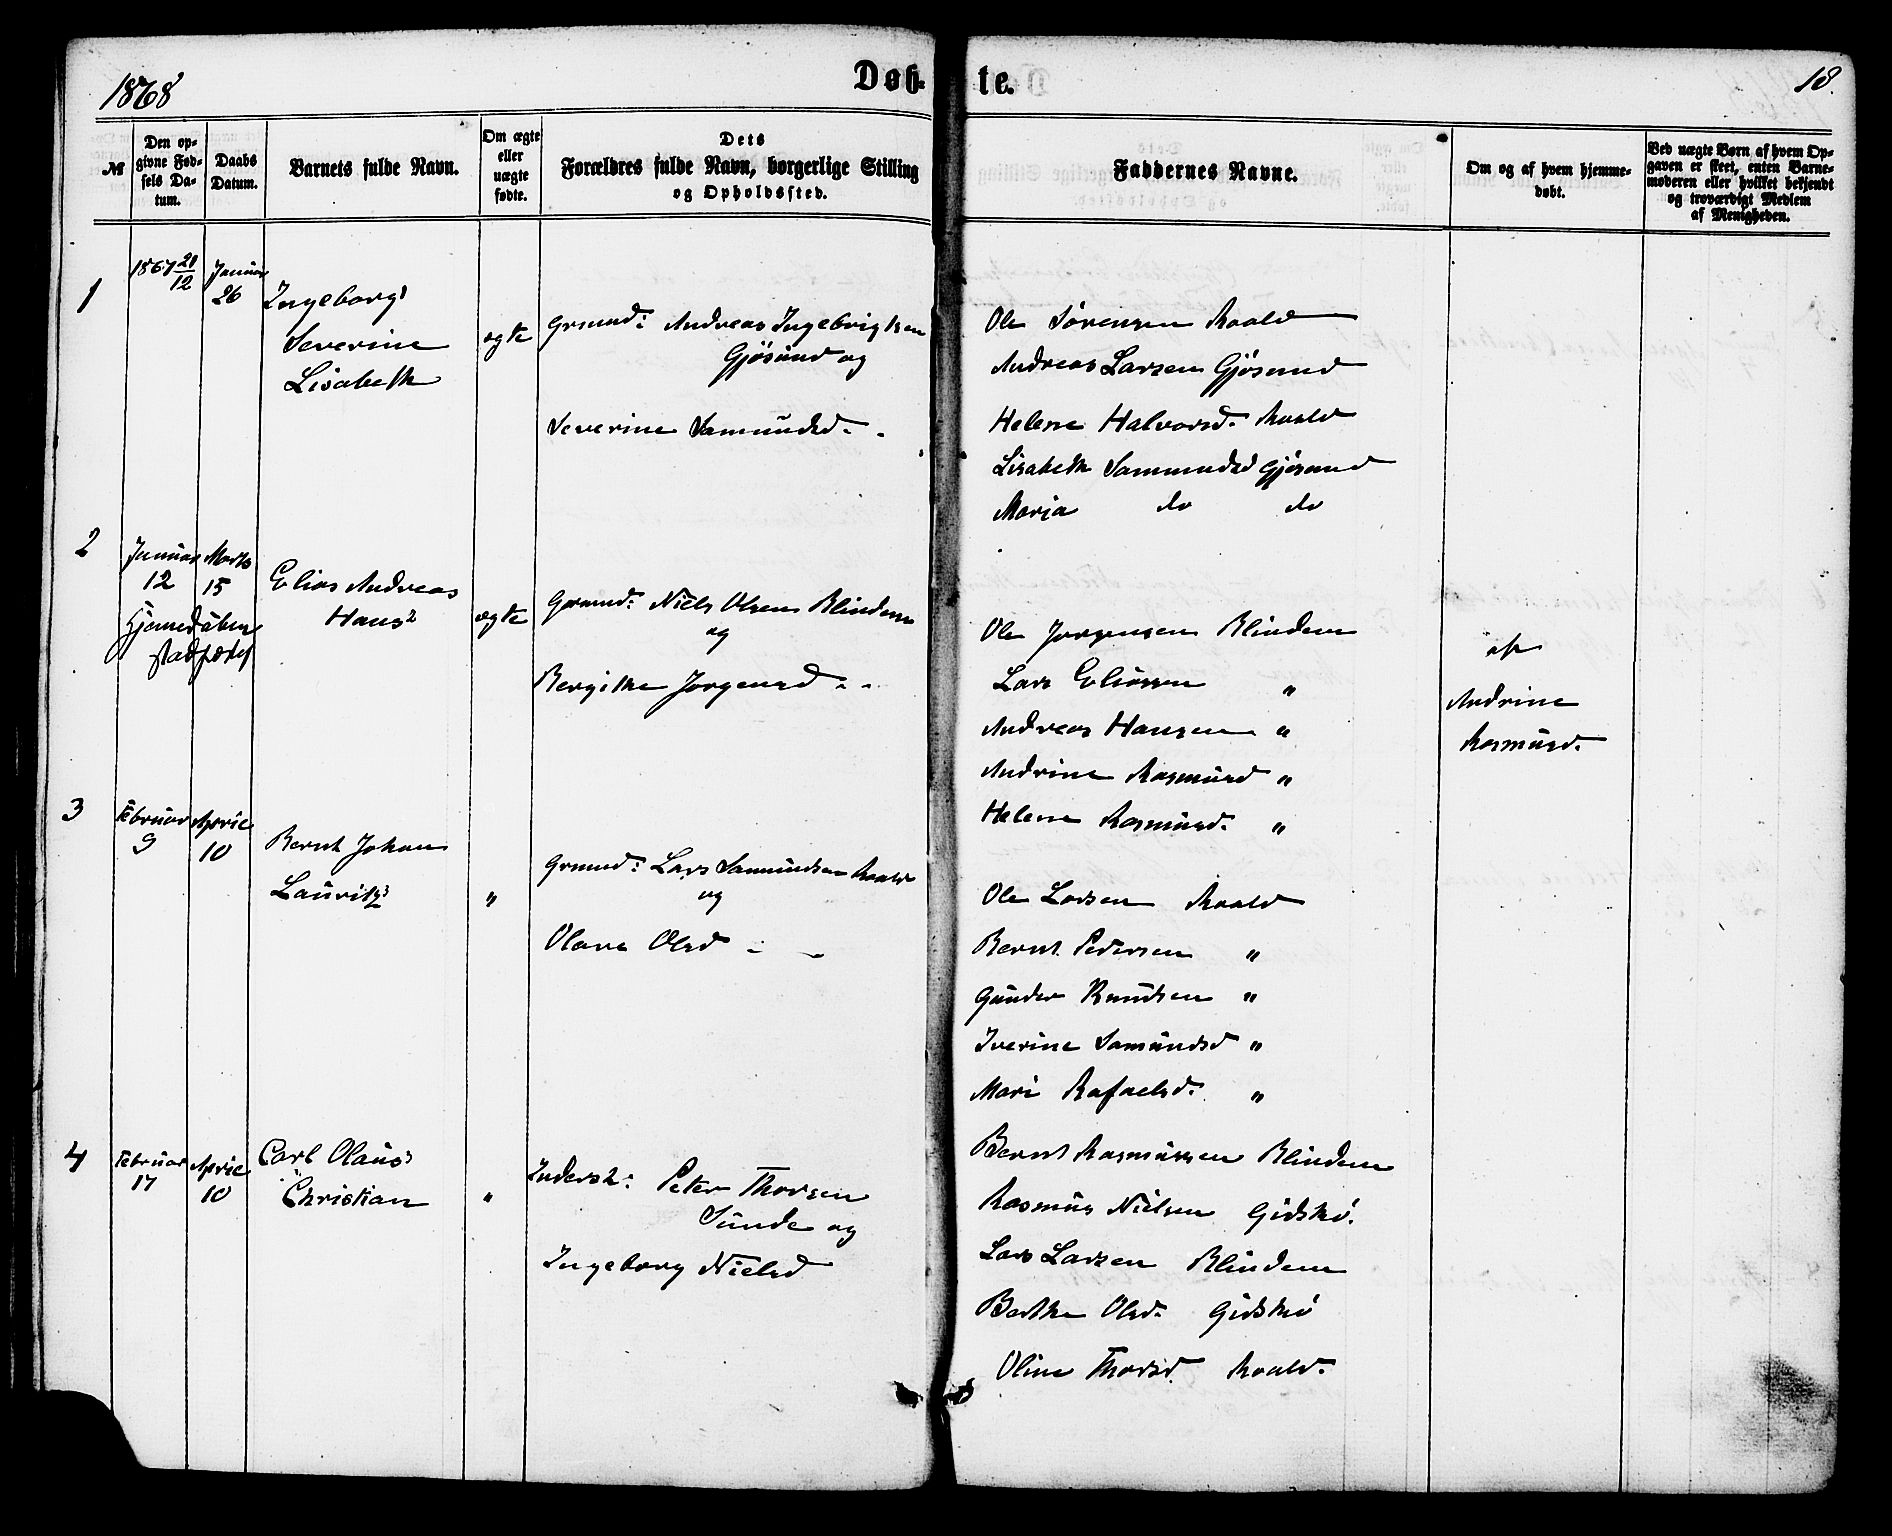 1868
Døb- te.
18.
№
Den op-
givne Fød-
sels Da-
tum.
Daabs
Datum.
Barnets fulde Navn.
Om ægte
eller
uægte
fødte.
Dets
Forældres fulde Navn, borgerlige Stilling
og Opholdssted.
Faddernes Navne.
Om og af hvem hjemme-
døbt.
Ved uægte Børn af hvem Op-
gaven er skeet, enten Barne-
moderen eller hvilket bekjendt
og troværdigt Medlem
af Menigheden.
1
1867 21/12
Januar
26
Ingeborg
Severine
Lisabeth
ægte
Grmnd: Andreas Ingebrigtsen
Gjøsund og
Severine Samundsd. -
Ole Sørensen Roald
Andreas Larsen Gjøsund
Helene Halvorsd. Roald
Lisabeth Sammundsd Gjøsund
Maria do do
2
Januar
12
Marts
15
Hjemedøben
stadfæstet
Elias Andreas
Hans
ægte
Grmnd: Niels Olsen Blindem
og
Bergithe Jørgensd - -
Ole Jørgensen Blindem
Lars Eliassen "
Andreas Hansen "
Andrine Rasmusd "
Helene Rasmusd. "
af
Andrine
Rasmusd.
3
Februar
9
April
10
Bernt Johan
Lauritz
"
Grmnd: Lars Samundsen Roald
og
Olave Olsd - -
Ole Larsen Roald
Bernt Pedersen "
Gunder Knudsen "
Iverine Samundsd "
Mari Rafaelsd. "
4
Februar
17
April
10
Carl Olaus
Christian
"
Inderst: Peter Thorsen
Sunde og
Ingeborg Nielsd
Bernt Rasmussen Blindem
Rasmus Nielsen Gidskø.
Lars Larsen Blindem
Berthe Olsd. Gidskø
Oline Thorsd. Roald.